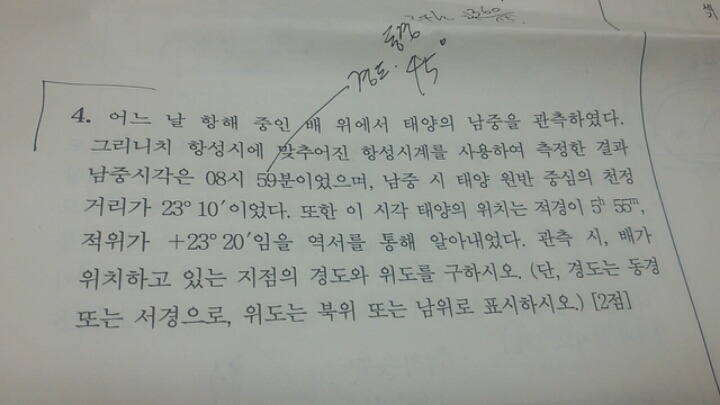 360
동경
경도. 45°
4. 어느 날 항해 중인 배 위에서 태양의 남중을 관측하였다.
그리니치 항성시에 맞추어진 항성시계를 사용하여 측정한 결과
남중시각은 08시 59분이었으며, 남중 시 태양 원반 중심의 천정
거리가 23° 10′이었다. 또한 이 시각 태양의 위치는 적경이 5ʰ 55ᵐ,
적위가 +23° 20′임을 역서를 통해 알아내었다. 관측 시, 배가
위치하고 있는 지점의 경도와 위도를 구하시오. (단, 경도는 동경
또는 서경으로, 위도는 북위 또는 남위로 표시하시오.) [2점]